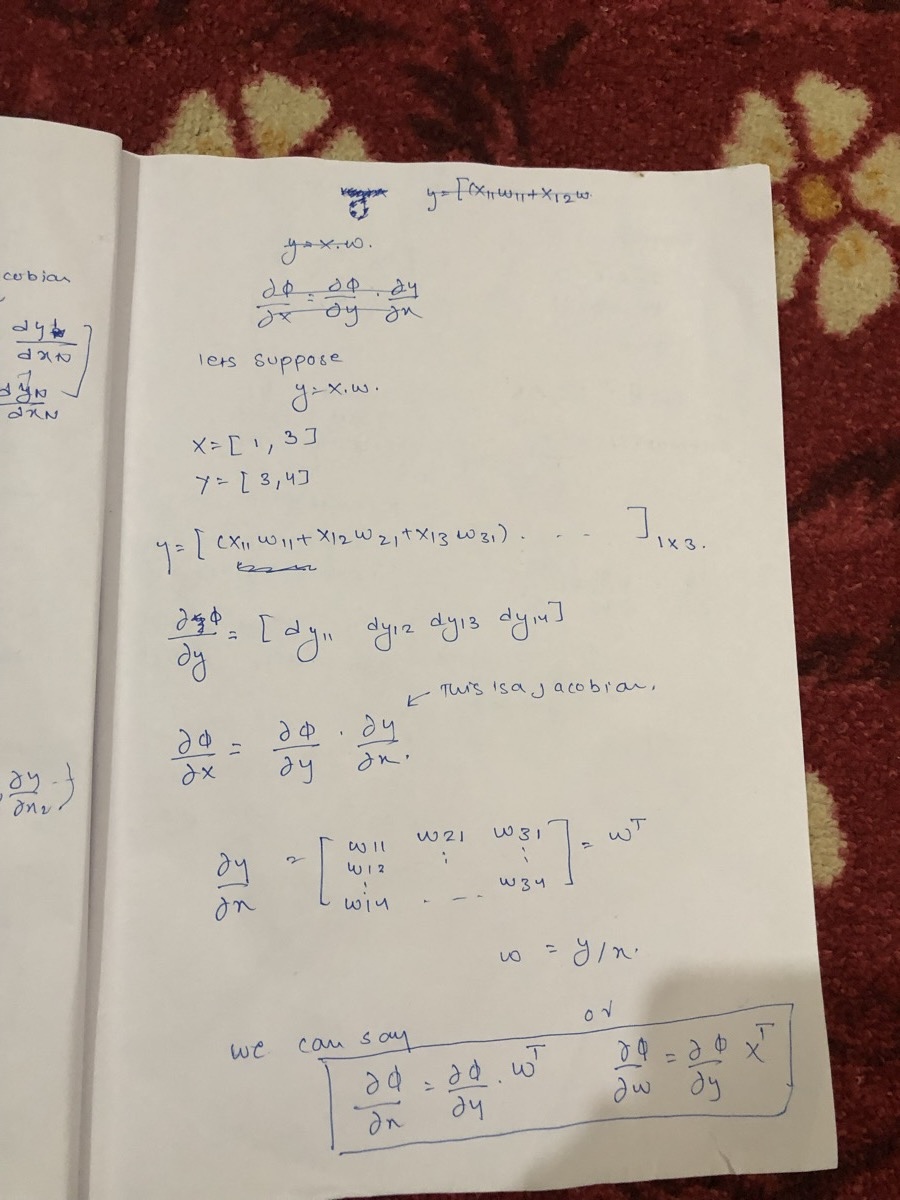 cobian
dy1
dxN
dyN
dxN
∂y
∂x2
y=[(x11w11+x12w
y=x.w.
∂Φ/∂x = ∂Φ/∂y . ∂y/∂x
lets suppose
y=x.w.
X=[1,3]
Y=[3,4]
y=[(x11w11+x12w21+x13w31). . - - ]1x3.
∂Φ/∂y = [dy11 dy12 dy13 dy14]
← This is a jacobian.
∂Φ/∂x = ∂Φ/∂y . ∂y/∂x.
∂y/∂x = [w11 w21 w31
w12 ⋮ ⋮
⋮
w14 . - - - w34] = wT
w = y/x.
we can say or
∂Φ/∂x = ∂Φ/∂y . wT ∂Φ/∂w = ∂Φ/∂y XT